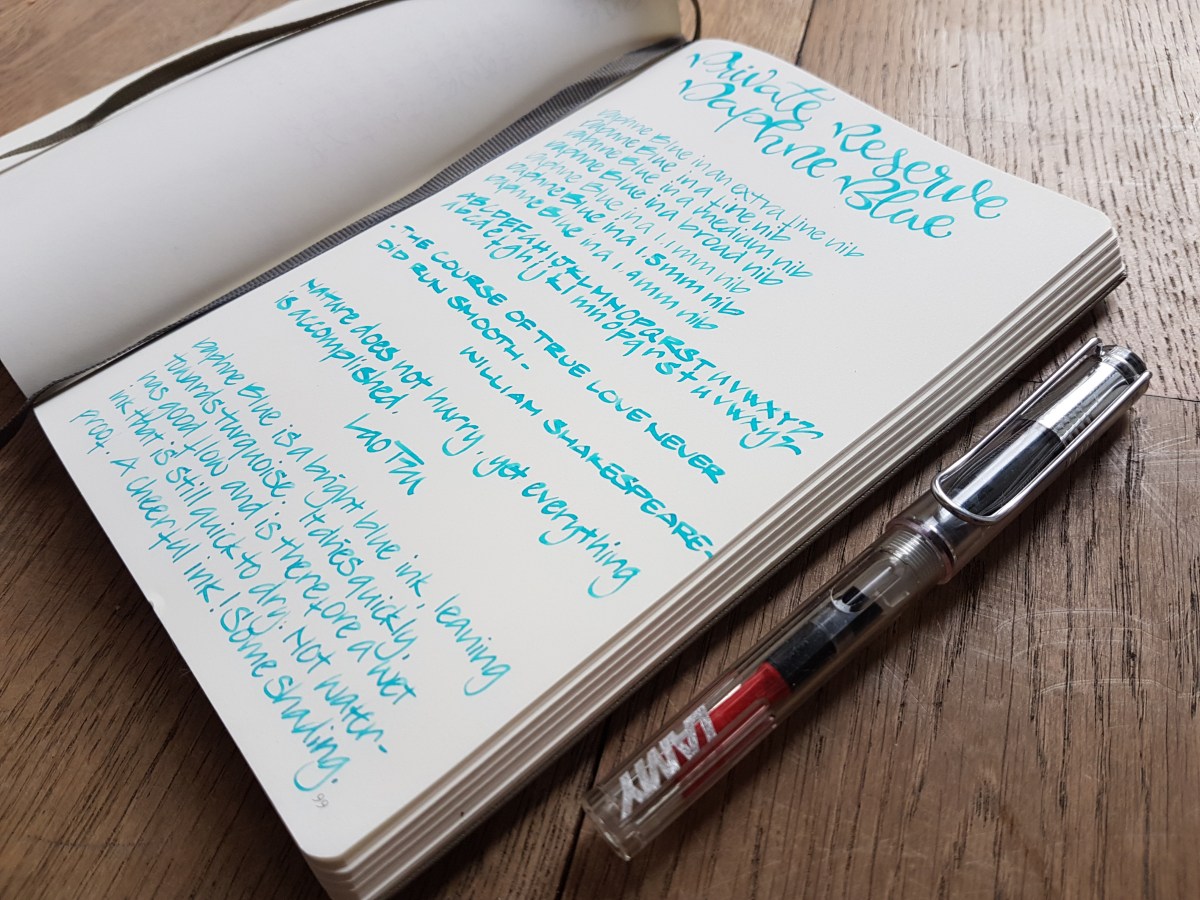 Private Reserve
Daphne Blue
Daphne Blue in an extra fine nib
Daphne Blue in a fine nib
Daphne Blue in a medium nib
Daphne Blue in a broad nib
Daphne Blue in a 1.1mm nib
Daphne Blue in a 1.5mm nib
Daphne Blue in a 1.9mm nib
ABCDEFGHIJKLMNOPQRSTUVWXYZ
abcdefghijklmnopqrstuvwxyz
- THE COURSE OF TRUE LOVE NEVER
DID RUN SMOOTH -
WILLIAM SHAKESPEARE-
Nature does not hurry, yet everything
is accomplished.
Lao Tzu
Daphne Blue is a bright blue ink, leaning
towards turquoise. It dries quickly,
has good flow and is therefore a wet
ink that is still quick to dry. Not water-
proof. A cheerful ink! Some shading.
99
LAMY